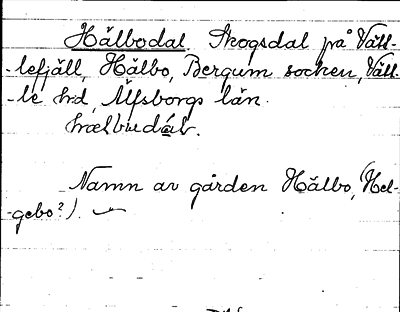 Hålbodal. Skogsdal på Vätt-
-lefjäll, Hålbo, Bergum socken, Vätt-
-le hd, Älfsborgs län.
Namn av gården Hålbo, (Hel-
-gebo?).